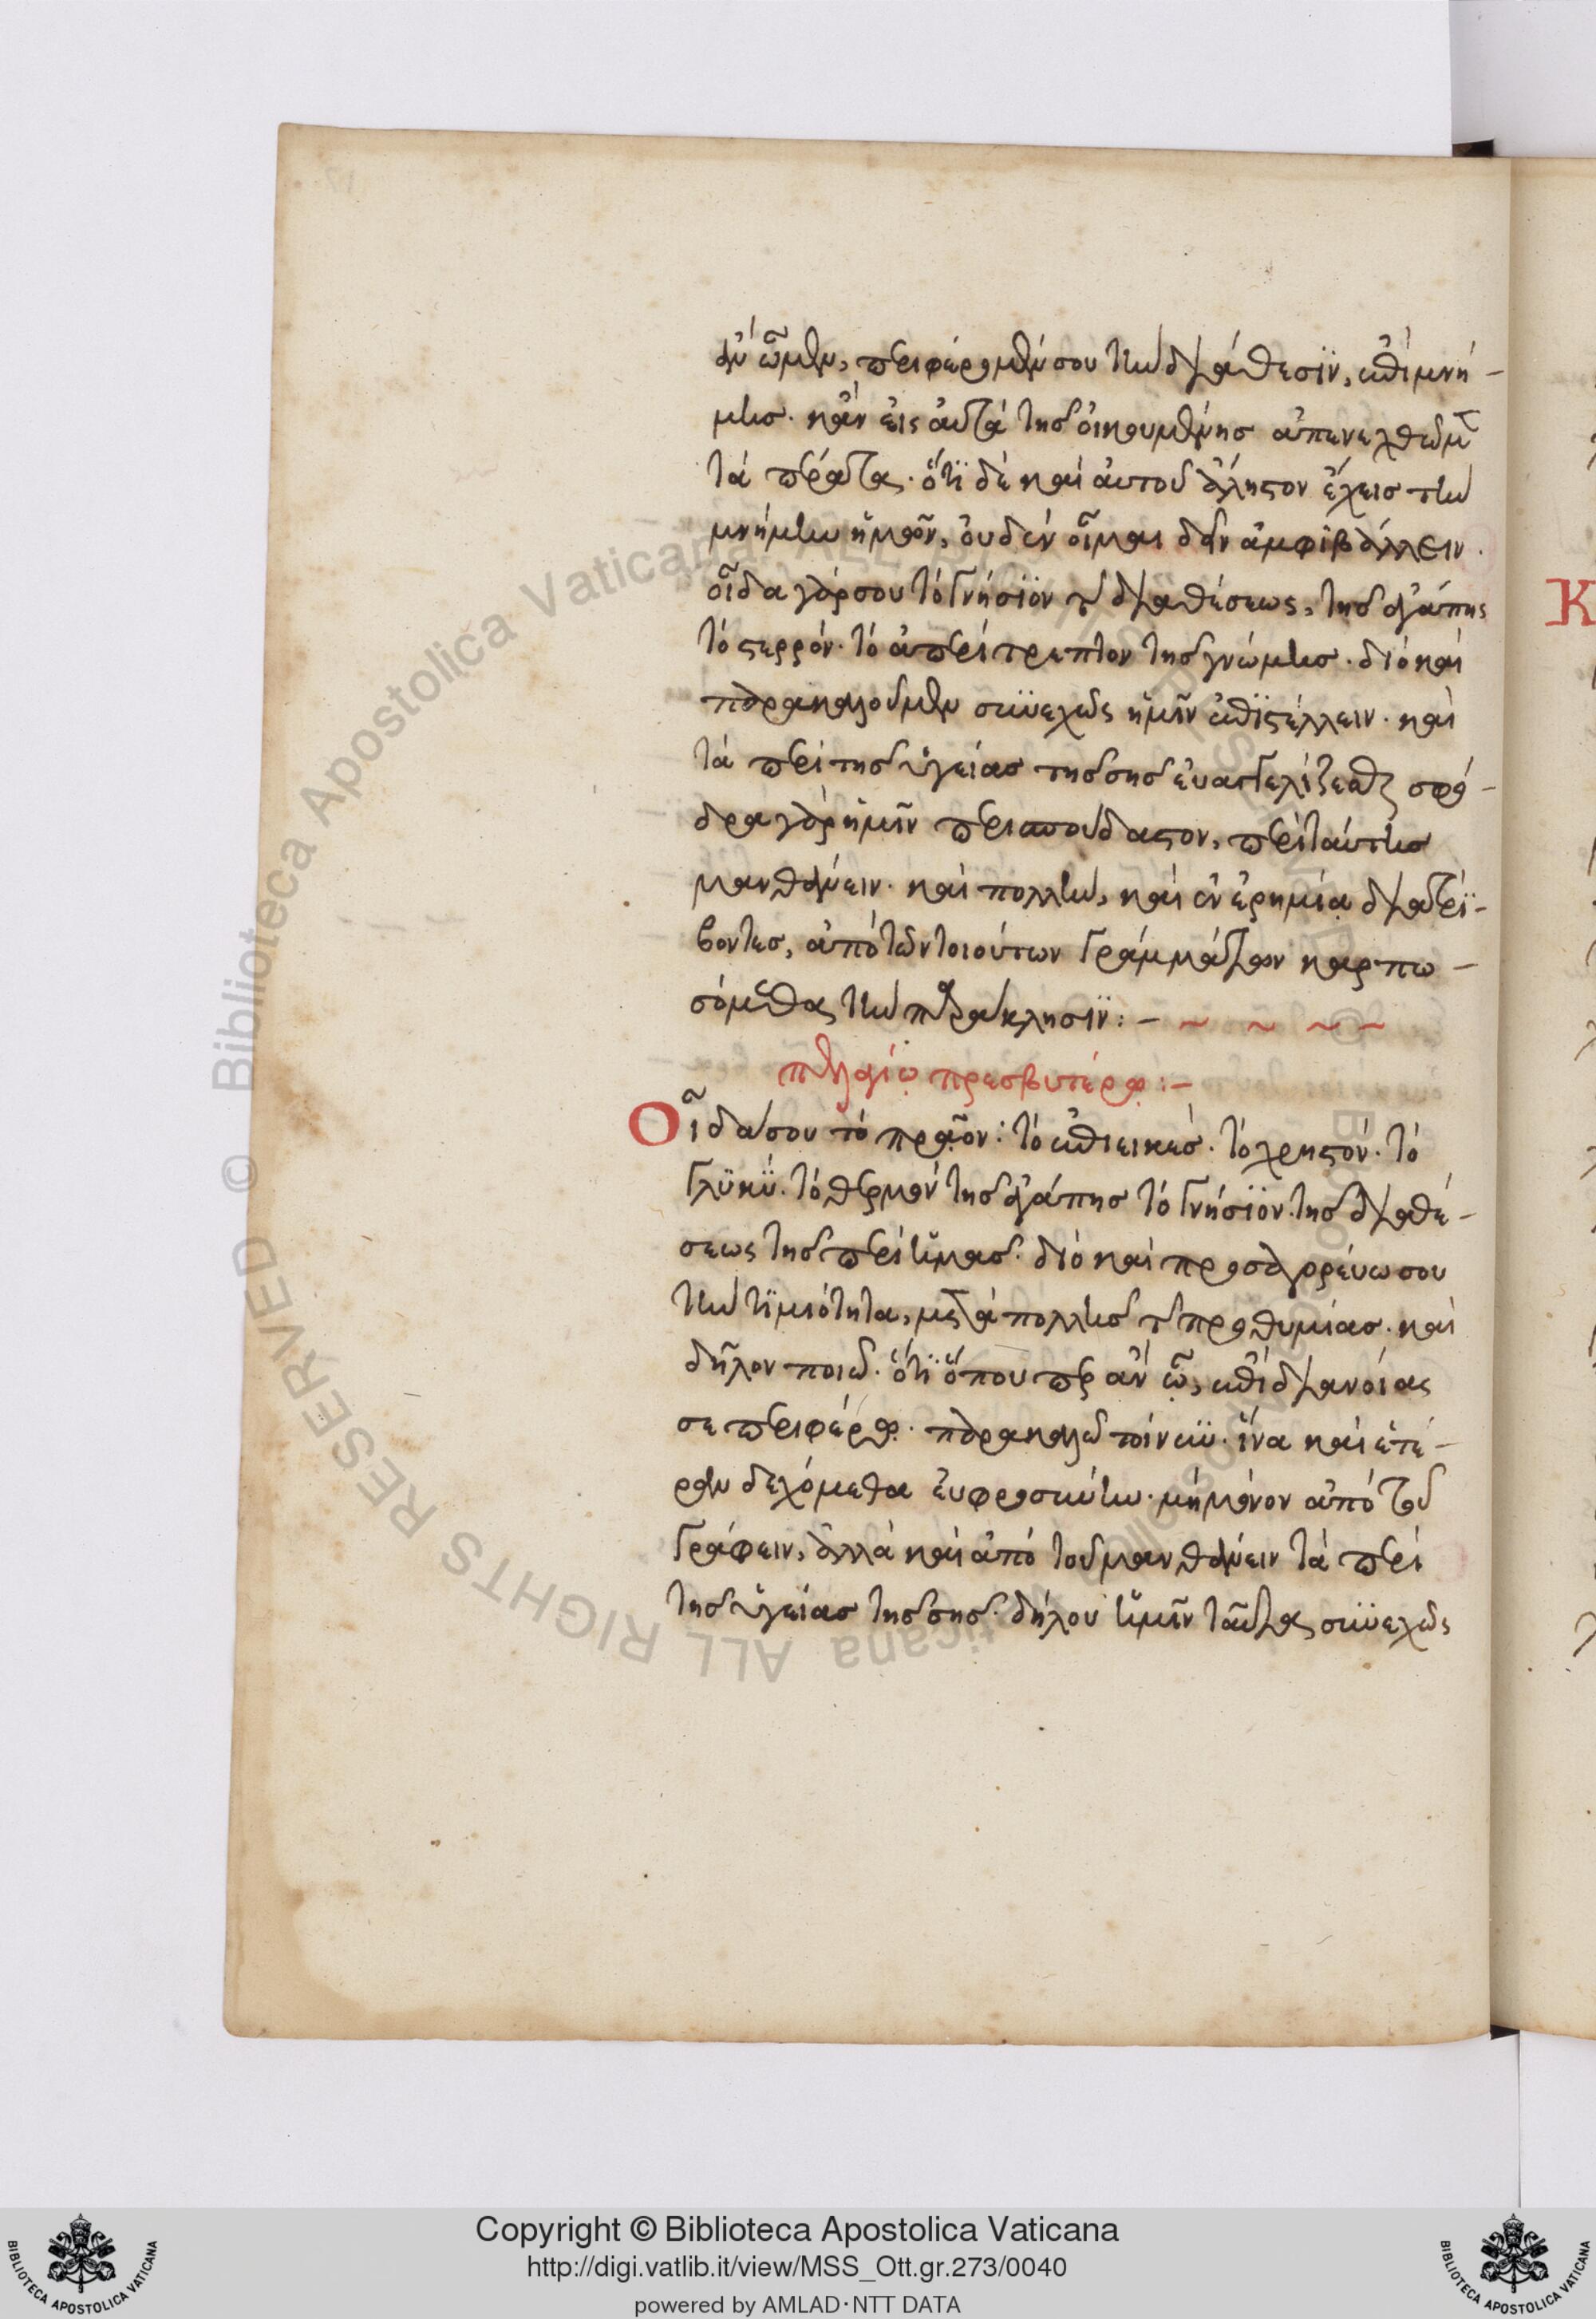 ἀν ὦμεν, περιφέρομέν σου τὴν διάθεσϊν, ἐπὶ μνή-
μης. κἂν εἰς αὐτὰ τῆς οἰκουμένης ἀπενεχθῶμεν
τὰ πέρατα. ὅτϊ δὲ καὶ αὐτὸς ἄληστον ἔχεις τὴν
μνήμην ἡμῶν, οὐδὲν οἶμαι δεῖν ἀμφιβάλλειν.
οἶδα γάρ σου τὸ γνήσϊον τῆς διαθέσεως, τῆς ἀγάπης
τὸ στερρόν. τὸ ἀπερίτρεπτον τῆς γνώμης. διὸ καὶ
παρακαλοῦμεν συνεχῶς ἡμῖν ἐπϊστέλλειν. καὶ
τὰ περὶ τῆς ὑγείας τῆς σῆς εὐαγγελίζεσθαι σφό-
δρα γὰρ ἡμῖν περισπούδαστον, περὶ ταύτης
μανθάνειν. καὶ πολλὴν, καὶ ἐν ἐρημία διατρί-
βοντες, ἀπὸ τῶν τοιούτων γραμμάτων καρπω-
σόμεθα τὴν παράκλησϊν: - ~ ~ ~ -
πελαγίῳ πρεσβυτέρῳ: -
Οἶδά σου τὸ πρᾶον: τὸ ἐπιεικές. τὸ χρηστόν. τὸ
γλϋκϋ. τὸ θερμὸν τῆς ἀγάπης τὸ γνήσϊον τῆς διαθέ-
σεως τῆς περὶ ἡμᾶς. διὸ καὶ προσαγορεύω σου
τὴν τϊμιότητα, μετὰ πολλῆς τῆς προθυμίας. καὶ
δῆλον ποιῶ. ὅτϊ ὅπου περ ἂν ὦ, ἐπὶ διανοίας
σε περιφέρω. παρακαλῶ τοίνυν. ἵνα καὶ ἑτέ-
ραν δεχόμεθα εὐφροσύνην. μὴ μόνον ἀπὸ τοῦ
γράφειν, ἀλλὰ καὶ ἀπὸ τοῦ μανθάνειν τὰ περὶ
τῆς ὑγείας τῆς σῆς. δήλου ἡμῖν ταῦτα συνεχῶς
Κ
Copyright © Biblioteca Apostolica Vaticana
http://digi.vatlib.it/view/MSS_Ott.gr.273/0040
powered by AMLAD·NTT DATA